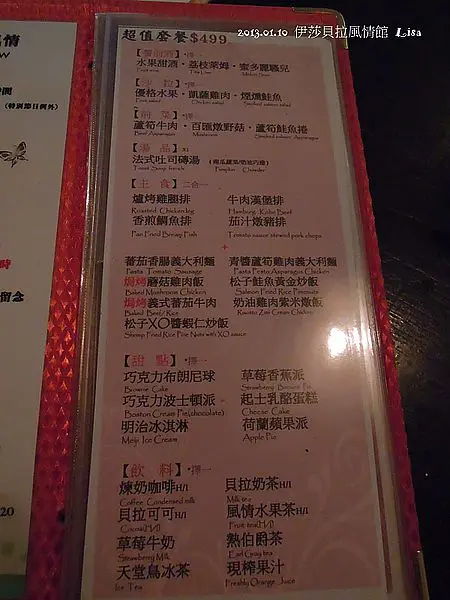 2013.01.10 伊莎貝拉風情館 Lisa
超值套餐$499
【餐前酒】·擇一
水果甜酒·荔枝萊姆·蜜多麗騷兒
Fruit wine
【沙拉】·擇一
優格水果·凱薩雞肉·煙燻鮭魚
Fruit salad Chicken salad Smoked salmon salad
【前菜】·擇一
蘆筍牛肉·百匯燉野菇·蘆筍鮭魚捲
Beef Asparagus Mushroom Smoked salmon Asparagus
【湯品】x1
法式吐司磚湯
Toast Soup french Pumpkin Chowder
【主食】二合一
爐烤雞腿排 牛肉漢堡排
Roasted Chicken leg Hamburg Kobe Beef
香煎鯛魚排 茄汁燉豬排
Pan Fried Bream Fish Tomato sauce stewed pork chops
+
蕃茄香腸義大利麵 青醬蘆筍雞肉義大利麵
Pasta Tomato Sausage Pasta Pesto Asparagus Chicken
焗烤蘑菇雞肉飯 松子鮭魚黃金炒飯
Baked Mushroom Chicken Salmon Fried Rice Pinenuts
焗烤義式蕃茄牛肉 奶油雞肉紫米燉飯
Baked Beef/ Rice Risotto Zim Cream Chicken
松子XO醬蝦仁炒飯
Shrimp Fried Rice Pine Nuts with XO sauce
【甜點】·擇一
巧克力布朗尼球 草莓香蕉派
Browne Cake Strawberry Banana Pie
巧克力波士頓派 起士乳酪蛋糕
Boston Cream Pie(chocolate) Cheese Cake
明治冰淇淋 荷蘭蘋果派
Meiji Ice Cream Apple Pie
【飲料】·擇一
煉奶咖啡H/I 貝拉奶茶H/I
Coffee Condensed milk Milk tea
貝拉可可H/I 風情水果茶H/I
Cocoa(H/I) Fruit tea(H/I)
草莓牛奶 熱伯爵茶
Strawberry Milk Earl Gray tea
天堂鳥冰茶 現榨果汁
Ice Tea Freshly Orange Juice
風情
(特別節日例外)
時
留念
20